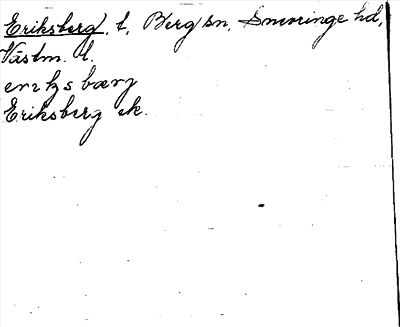 Eriksberg, t, Berg sn, Snevringe hd,
Västm. l.
erıksbærj
Eriksberg ek.